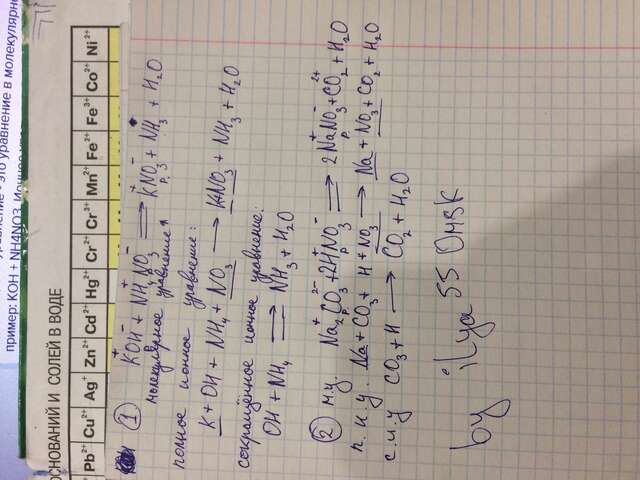 уравнение - это уравнение в молекулярно
пример: KOH + NH4NO3. Ионное
ОСНОВАНИЙ И СОЛЕЙ В ВОДЕ
Pb²⁺ Cu²⁺ Ag⁺ Zn²⁺ Cd²⁺ Hg²⁺ Cr²⁺ Cr³⁺ Mn²⁺ Fe²⁺ Fe³⁺ Co²⁺ Ni²⁺
1 K⁺OH⁻ + NH₄⁺NO₃⁻ ⇌ K⁺NO₃⁻ + NH₃ + H₂O
р. р. р.
молекулярное уравнение
полное ионное уравнение:
K + OH + NH₄ + NO₃ → K + NO₃ + NH₃ + H₂O
сокращённое ионное уравнение:
OH + NH₄ ⇌ NH₃ + H₂O
2 м.у. Na₂⁺CO₃²⁻ + 2H⁺NO₃⁻ ⇌ 2Na⁺NO₃⁻ + CO₂²⁺ + H₂O
р. р. р.
п. и. у. Na + CO₃ + H + NO₃ → Na + NO₃ + CO₂ + H₂O
с.и.у CO₃ + H → CO₂ + H₂O
by ilya 55 Омsк